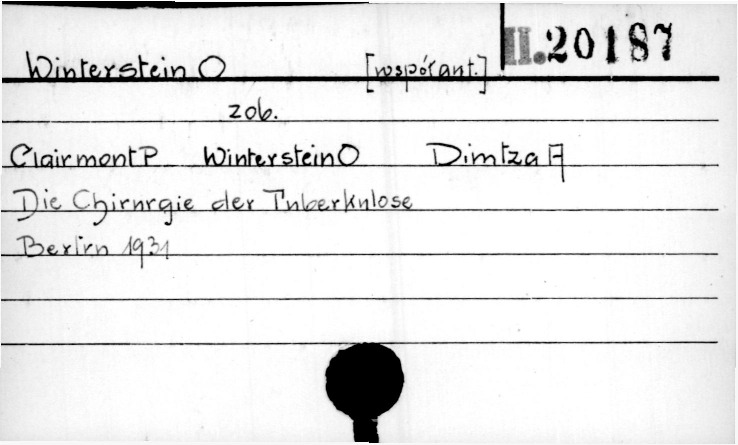 II.20187
Winterstein O [współaut.]
zob.
Clairmont P Winterstein O Dimtza A
Die Chirurgie der Tuberkulose
Berlin 1931